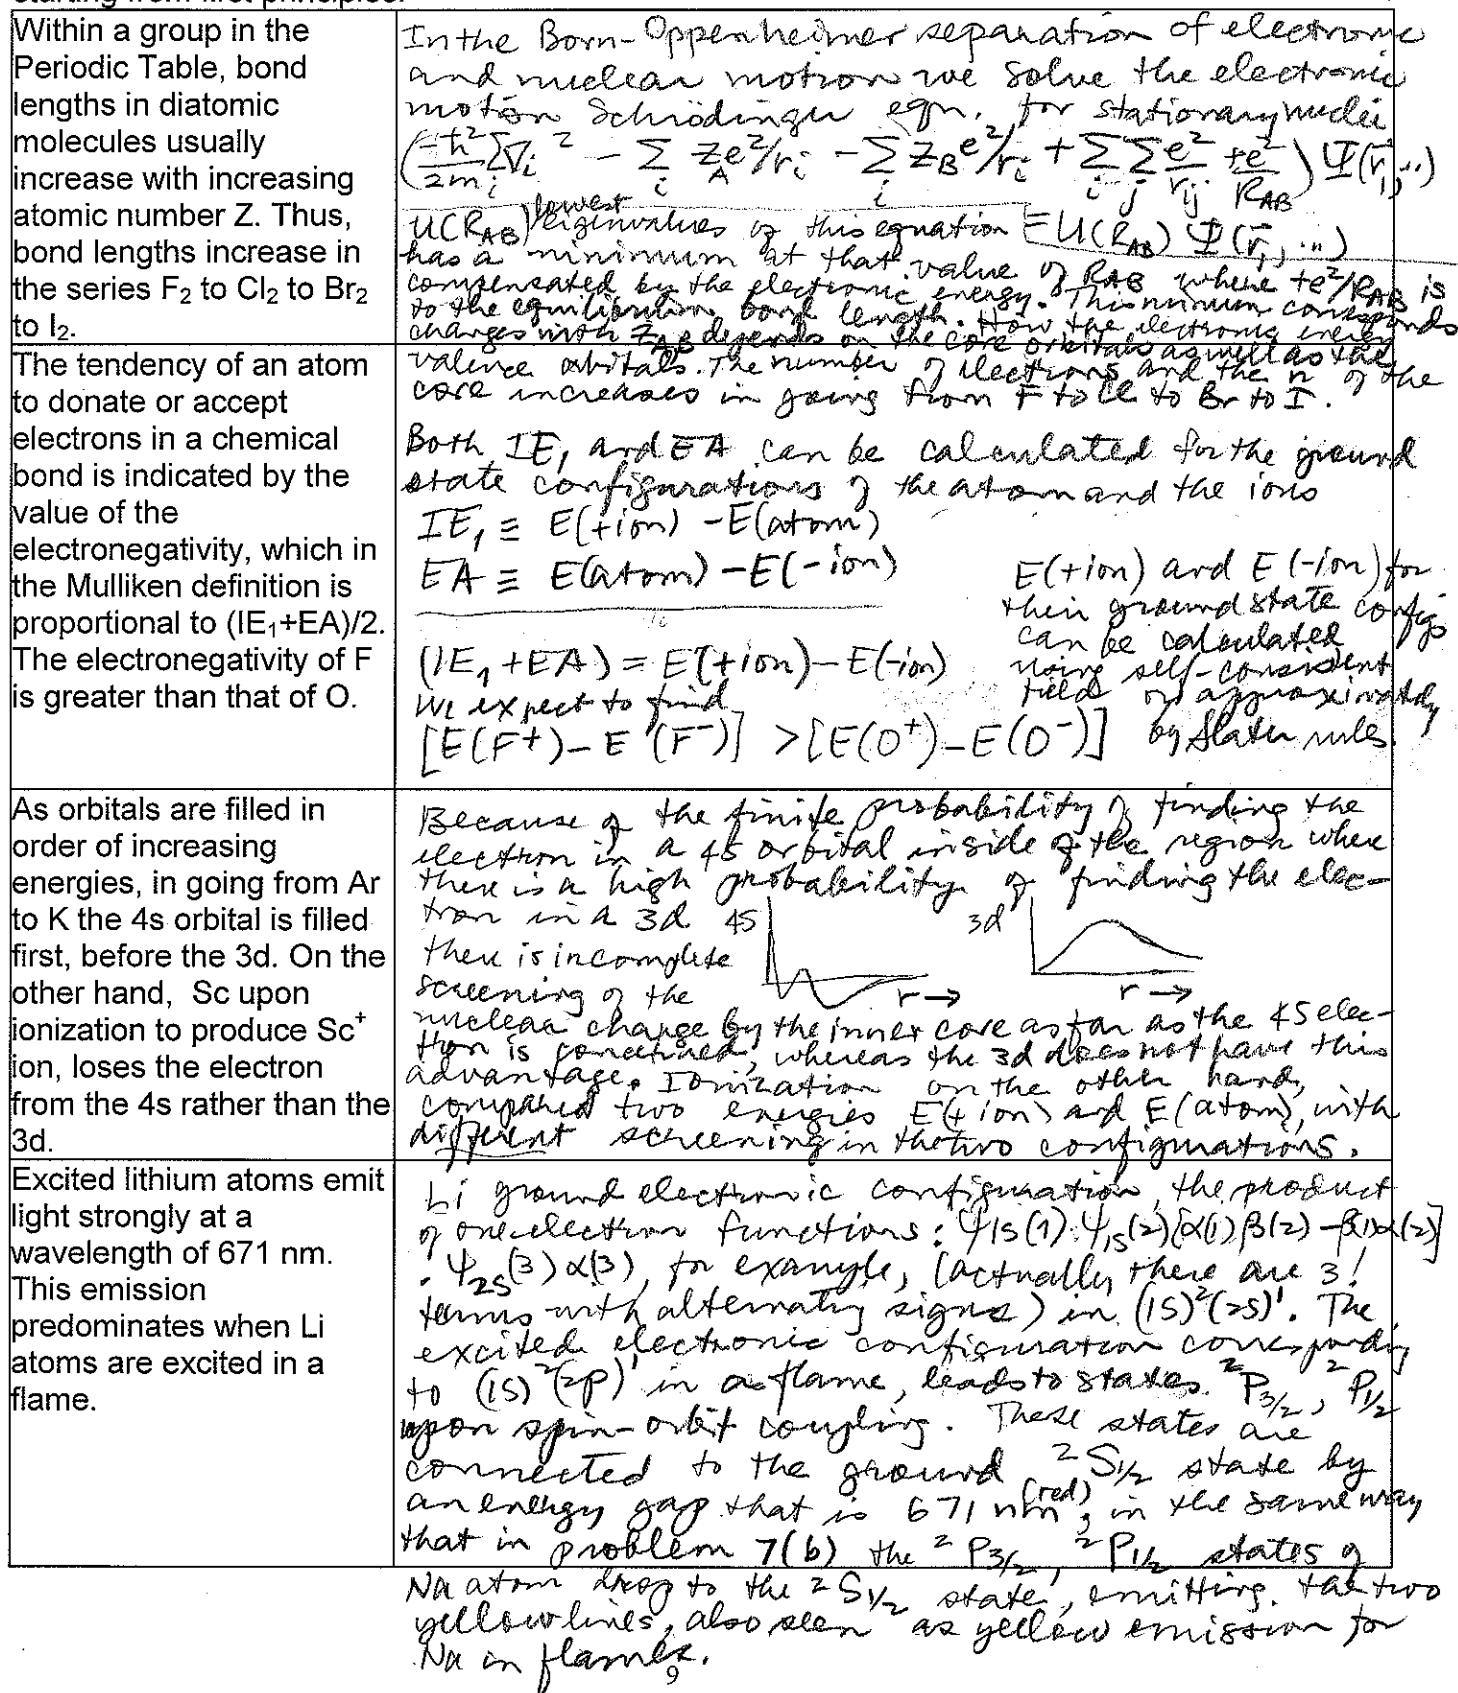 starting from first principles.
Within a group in the
Periodic Table, bond
lengths in diatomic
molecules usually
increase with increasing
atomic number Z. Thus,
bond lengths increase in
the series F₂ to Cl₂ to Br₂
to I₂.
In the Born-Oppenheimer separation of electronic
and nuclear motion we solve the electronic
motion Schrödinger eqn. for stationary nuclei
(-ħ²/2m Σᵢ ∇ᵢ² - Σᵢ Z_A e²/rᵢ - Σᵢ Z_B e²/rᵢ + Σᵢ Σⱼ e²/rᵢⱼ + e²/R_AB) Ψ(r⃗₁,...)
= U(R_AB) Ψ(r⃗₁, ...)
U(R_AB) lowest eigenvalues of this equation
has a minimum at that value of R_AB where +e²/R_AB is
compensated by the electronic energy. This minimum corresponds
to the equilibrium bond length. How the electronic energy
changes with Z_AB depends on the core orbitals as well as the
valence orbitals. The number of electrons and the n of the
core increases in going from F to Cl to Br to I.
The tendency of an atom
to donate or accept
electrons in a chemical
bond is indicated by the
value of the
electronegativity, which in
the Mulliken definition is
proportional to (IE₁+EA)/2.
The electronegativity of F
is greater than that of O.
Both IE₁ and EA can be calculated for the ground
state configurations of the atom and the ions
IE₁ ≡ E(+ion) - E(atom)
EA ≡ E(atom) - E(-ion)
(IE₁ + EA) = E(+ion) - E(-ion)
We expect to find
[E(F⁺) - E(F⁻)] > [E(O⁺) - E(O⁻)]
E(+ion) and E(-ion) for
their ground state configs
can be calculated
using self-consistent
field or approximately
by Slater rules.
As orbitals are filled in
order of increasing
energies, in going from Ar
to K the 4s orbital is filled
first, before the 3d. On the
other hand, Sc upon
ionization to produce Sc⁺
ion, loses the electron
from the 4s rather than the
3d.
Because of the finite probability of finding the
electron in a 4s orbital inside of the region where
there is a high probability of finding the elec-
tron in a 3d
4s
3d
there is incomplete
screening of the
r →
r →
nuclear charge by the inner core as far as the 4s elec-
tron is concerned, whereas the 3d does not have this
advantage. Ionization on the other hand,
compared two energies E(+ion) and E(atom), with
different screening in the two configurations.
Excited lithium atoms emit
light strongly at a
wavelength of 671 nm.
This emission
predominates when Li
atoms are excited in a
flame.
Li ground electronic configuration, the product
of one electron functions: ψ1s(1)·ψ1s(2)[α(1)β(2) - β(1)α(2)]
· ψ2s(3)α(3), for example, (actually there are 3!
terms with alternating signs) in (1s)²(2s)¹. The
excited electronic configuration corresponding
to (1s)²(2p)¹ in a flame, leads to states ²P₃/₂, ²P₁/₂
upon spin-orbit coupling. These states are
connected to the ground ²S₁/₂ state by
an energy gap that is 671 nm (red), in the same way
that in problem 7(b) the ²P₃/₂, ²P₁/₂ states of
Na atom drop to the ²S₁/₂ state, emitting the two
yellow lines, also seen as yellow emission for
Na in flames.
9